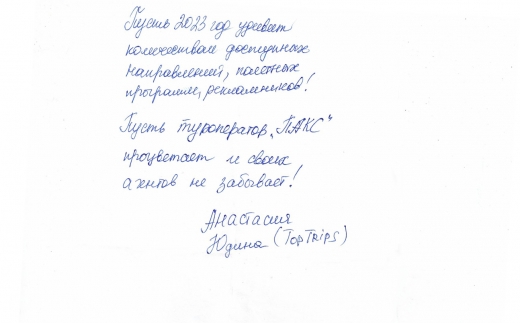 Пусть 2023 год удивит
количеством доступных
направлений, полетных
программ, рекламников!
Пусть туроператор „ПАКС"
процветает и своих
агентов не забывает!
Анастасия
Юдина (TopTrips)